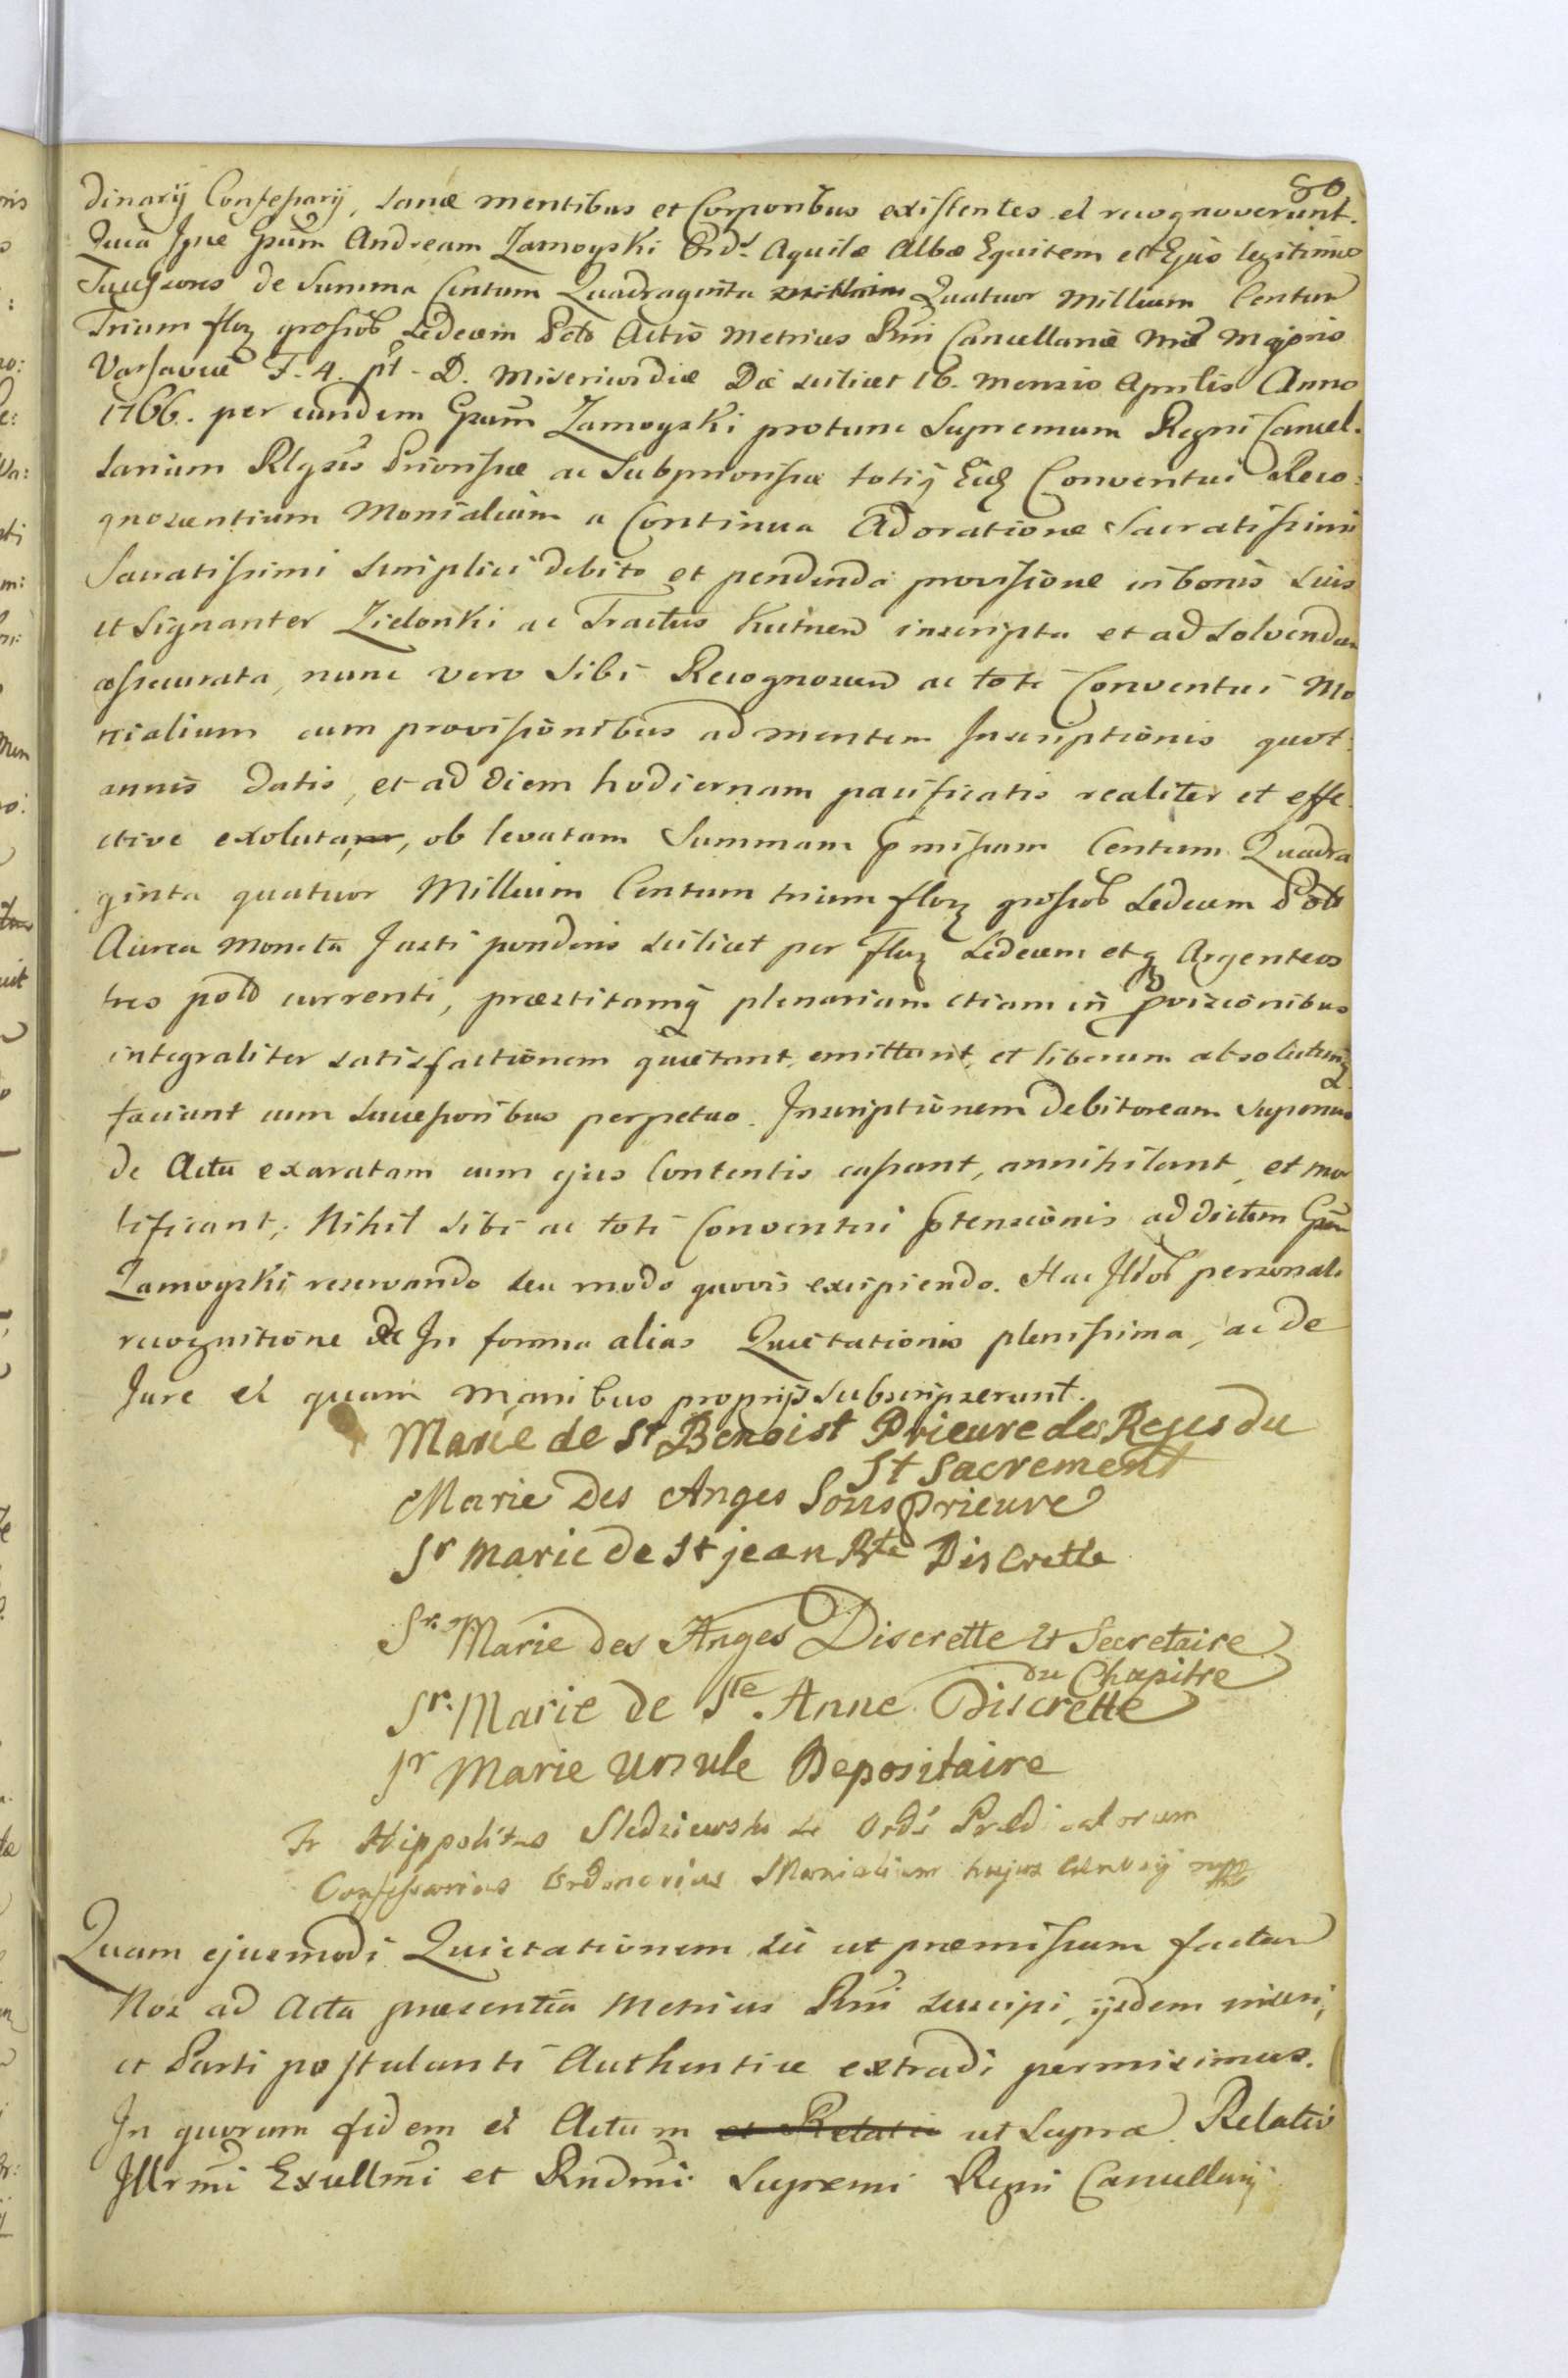 80
dinarij Confessarij, sanæ mentibus et Corporibus existentes et recognoverunt.
Quia Ipsæ Gsum Andream Zamoyski Ord. Aquilæ Albæ Equitem et Ejus legitimos
Sucessores de Summa Centum Quadraginta Quatuor Millium Centum
Trium flor grossob Sedecim Pol Actis Metrices Rni Cancellariæ Mris Majoris
Varsaviæ F. 4. pt D. Misericordiæ Dei scilicet 16. mensis Aprilis Anno
1766. per eundem Gsum Zamoyski protunc Supremum Regni Cancel-
larium Rlgsis Priorissæ ac Subpriorissæ totiq Conventui Reco:
gnoscentium Monialium a Continua Adoratione Sacratissimi
Sacratissimi simplici debito et pendenda provisione in bonis suis
et signanter Zielonki ac Tractus Kutnen inscripta et ad solvendum
assecurata, nunc vero sibi Recognoscen ac toti Conventui Mo
nialium cum provisionibus ad mentem Inscriptionis quot:
annis datis, et ad diem hodiernam pacificatis realiter et effe
ctive exoluta, ob levatam Summam pmissam Centum Quadra
ginta quatuor Millium Centum trium flor grossob Sedecim Pol
Aurea moneta Justi ponderis scilicet per flor Sedecem et g Argenteos
tres pold currenti, præstitamq plenariam etiam in Provisionibus
integraliter satisfactionem quietant, emittunt, et liberum absolutumq
faciunt cum Sucessoribus perpetuo. Inscriptionem debitoream superin
de Actu exaratam cum ejus Contentis cassant, annihilant, et mor
tificant, Nihil sibi ac toti Conventui ptensionis ad dictum Gsum
Zamoyski reservando seu modo quovis excipiendo. Hac personali
recognitione In forma alias Quietationis plenissima, ac de
Jure et quam manibus proprijs subscripserunt.
Marie de St Benoist Prieure des Reses du
St Sacrement
Marie Des Anges Sous prieure
Sr marie de St jean Bte Discrette
Sr. Marie des Anges Discrette et Secretaire
du Chapitre
Sr. Marie de Ste. Anne Discrette
Sr Marie ursule Depositaire
Fr Hippolitus Sledziewski S Ords Prædicatorum
Confessarius Ordinarius Monialium hujus Conv mpp
Quam ejusmodi Quietationem sic ut præmissum factam
Nos ad Acta præsentia Metrices Rni suscipi, ijsdem inseri,
et Parti postulanti Authentice extradi permisimus.
In quorum fidem et Actum et Relatio ut supra. Relatio
Illrmi Excellmi et Rndmi Supremi Regni Cancellarij